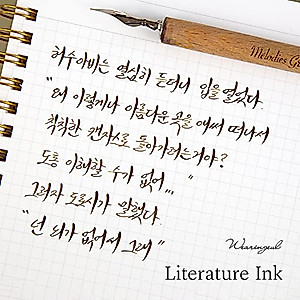 Melodies Gr
허수아비는 열심히 듣더니 입을 열었다.
"왜 이렇게나 아름다운 곳을 애써 떠나서
칙칙한 캔자스로 돌아가려는거야?
도통 이해할 수가 없어..."
그러자 도로시가 말했다.
"넌 뇌가 없어서 그래"
Wearingeul
Literature Ink